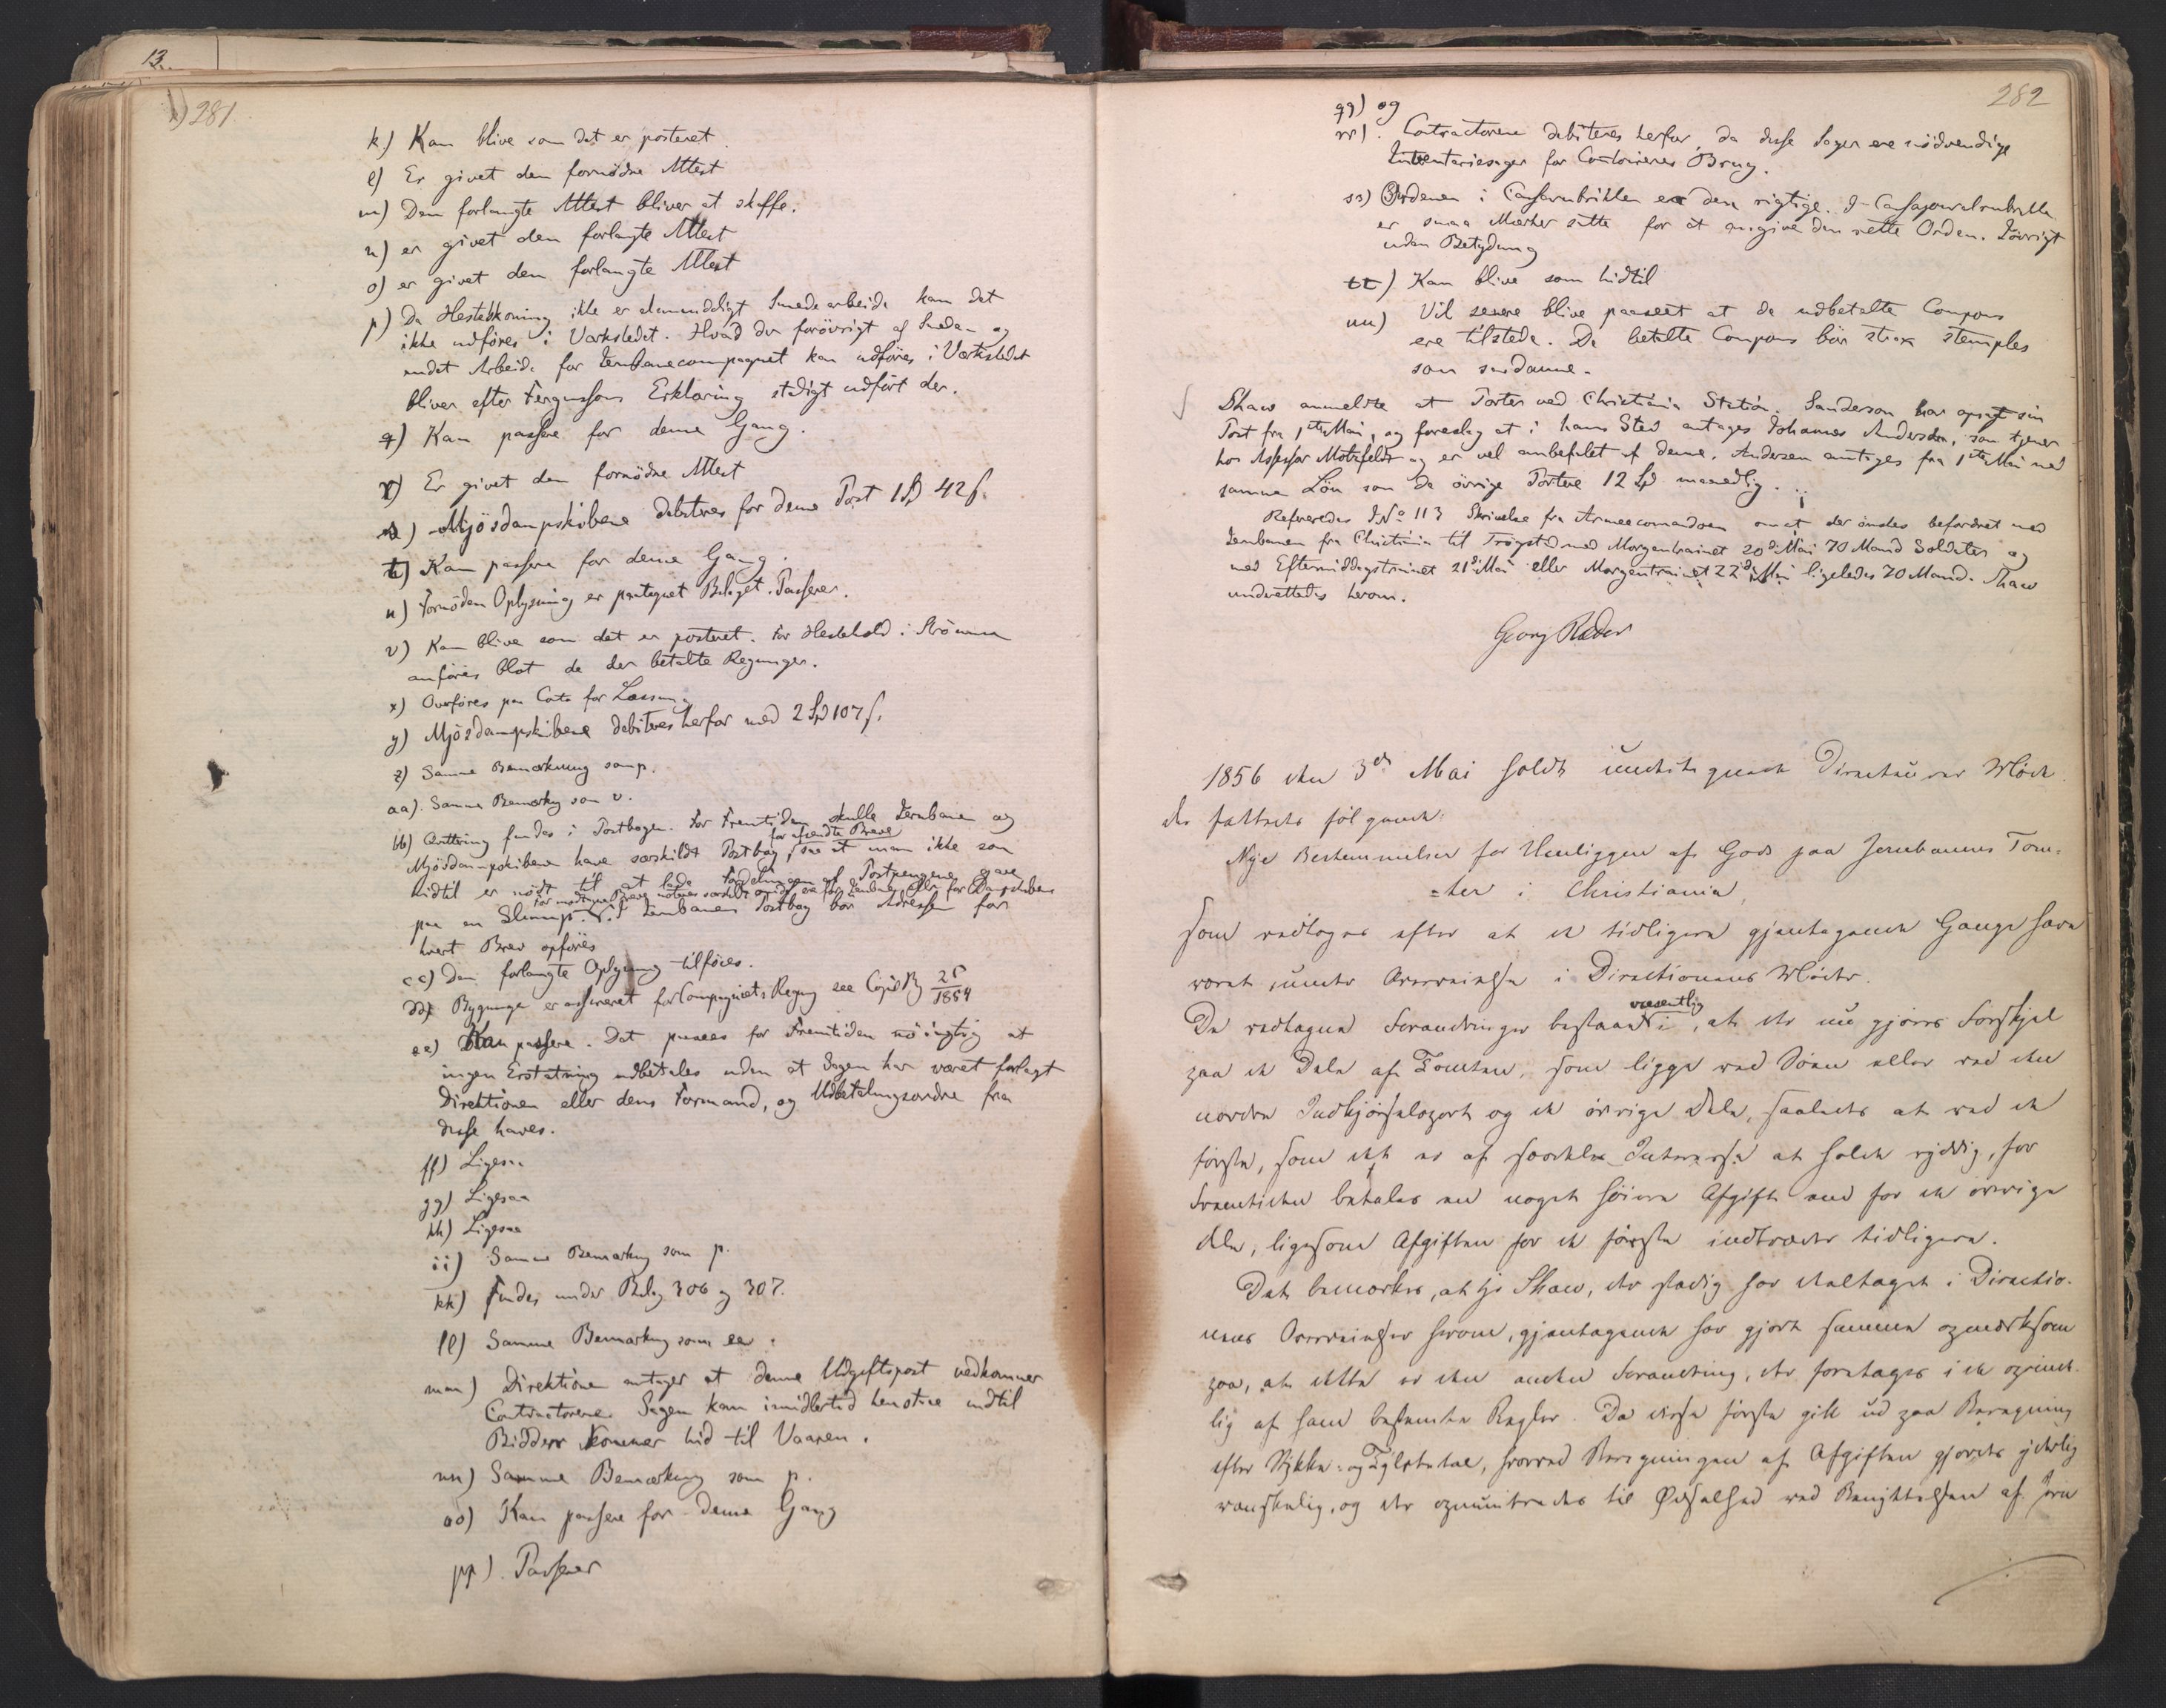 13.
281
k.) Kan blive som det er posteret.
l) Er givet den fornødne Attest
m) Den forlangte Attest bliver at skaffe.
n) er givet den forlangte Attest
o) er givet den forlangte Attest
p) Da Hesteskoning ikke er almindeligt Smedearbeide kan det
ikke udføres i Værkstedet. Hvad der forövrigt af Smede- og
andet Arbeide for Jernbanecompagniet kan udføres i Værkstedet
bliver efter Fergussons Erklæring stadigt udført der.
q) Kan passere for denne Gang.
r) Er givet den fornødne Attest
s) Mjösdampskibene debiteres for denne Post 1 Spd 42 s.
t) Kan passere for denne Gang.
u) Fornöden Oplysning er paategnet Bilaget. Passerer.
v) Kan blive som det er posteret. For Hestehold i Strömmen
anføres blot de der betalte Regninger.
x) Overføres paa Conto for Læsning
y) Mjösdampskibene debiteres herfor med 2 Spd 107 s.
z) Samme Bemærkning som p.
aa). Samme Bemærkg som v.
bb) Qvittering findes i Postbogen. For Fremtiden skulle Jernbanen og
Mjösdampskibene have særskildt Postbog for afsendte Breve, saa at man ikke som
hidtil er nødt til at lade Fordelingen af Postpengene gaae
paa en Slump. I Jernbanens Postbog bør Adressen for
hvert Brev opføres
cc) Den forlangte Oplysning tilføres.
dd) Bygninge er assureret for Compagniets Regng see CopieBg 25/1854
ee) Kan passere. Det paasees for Fremtiden nöiagtig at
ingen Erstatning udbetales uden at Sagen har været forlagt
Direktionen eller dens Formand, og Udbetalingsordre fra
disse haves.
ff) Ligesaa
gg) Ligesaa
hh) Ligesaa
ii) Samme Bemærkng som p.
kk) Findes under Bilag 306 og 307.
ll) Samme Bemærkng som ee.
mm) Direktionen antager at denne Udgiftspost vedkommer
Contractorerne. Sagen kan imidlertid henstaae indtil
Bidder kommer hid til Vaaren.
nn) Samme Bemærkning som p.
oo) Kan passere for denne Gang
pp). Passerer
282
qq) og
rr). Contractorerne debiteres herfor, da disse Sager ere nödvendige
Inventariesager for Contoirernes Brug.
ss) Ordenen i Cassarubrikken er den rigtige. I Cassajournalrubrikken
er smaa Mærker satte for at angive den rette Orden. Iövrigt
uden Betydning
tt) Kan blive som hidtil
uu) Vil senere blive paaseet at de udbetalte Coupons
ere tilstede. De betalte Coupons bör strax stemples
som saadanne.
Shaw anmeldte at Porter ved Christiania Station. Sanderson har opsagt sin
Post fra 1ste Mai, og foreslog at i hans Sted antages Johannes Andersen, som tjener
hos Assessor Motzfeldt og er vel anbefalet af denne. Andersen antages fra 1ste Mai med
samme Lön som de övrige Portere 12 Spd maanedlig.
Refereredes J.No 113 Skrivelse fra Armeecomandoen om at der ønskes befordret med
Jernbanen fra Christiania til Trögstad med Morgentrainet 20de Mai 70 Mand Soldater og
med Eftermiddagstrainet 21de Mai eller Morgentrainet 22de Mai ligeledes 70 Mand. Shaw
underrettedes herom.
Georg Ræder
1856 den 3de Mai holdt undertegnede Directeurer Möde.
der fattedes fölgende:
Nye Bestemmelser for Henliggen af Gods paa Jernbanens Tom-
=ter i Christiania,
som vedtoges efter at de tidligere gjentagende Gange have
været under Overveielse i Directionens Møder.
De vedtagne Forandringer bestaae væsentlig i, at der nu gjøres Forskjel
paa de Dele af Tomten, som ligge ved Søen eller ved den
nordre Indkjørselsport og de övrige Dele, saaledes at ved de
første, som det er af særdeles Interesse at holde ryddig, for
Fremtiden betales en noget höiere Afgift end for de övrige
Dele, ligesom Afgiften for de første indtræder tidligere.
Det bemærkes, at Hr Shaw, der stadig har deeltaget i Directio-
nens Overveielser herom, gjentagende har gjort samme opmærksom
paa, at dette er den anden Forandring, der foretages i de oprinde-
lig af ham bestemte Regler. De disse første gik ud paa Beregning
efter Stykke- og Tylvtetal, hvorved Beregningen af Afgiften gjordes yderlig
vanskelig, og der opmuntredes til Ødselhed ved Benyttelsen af Jern